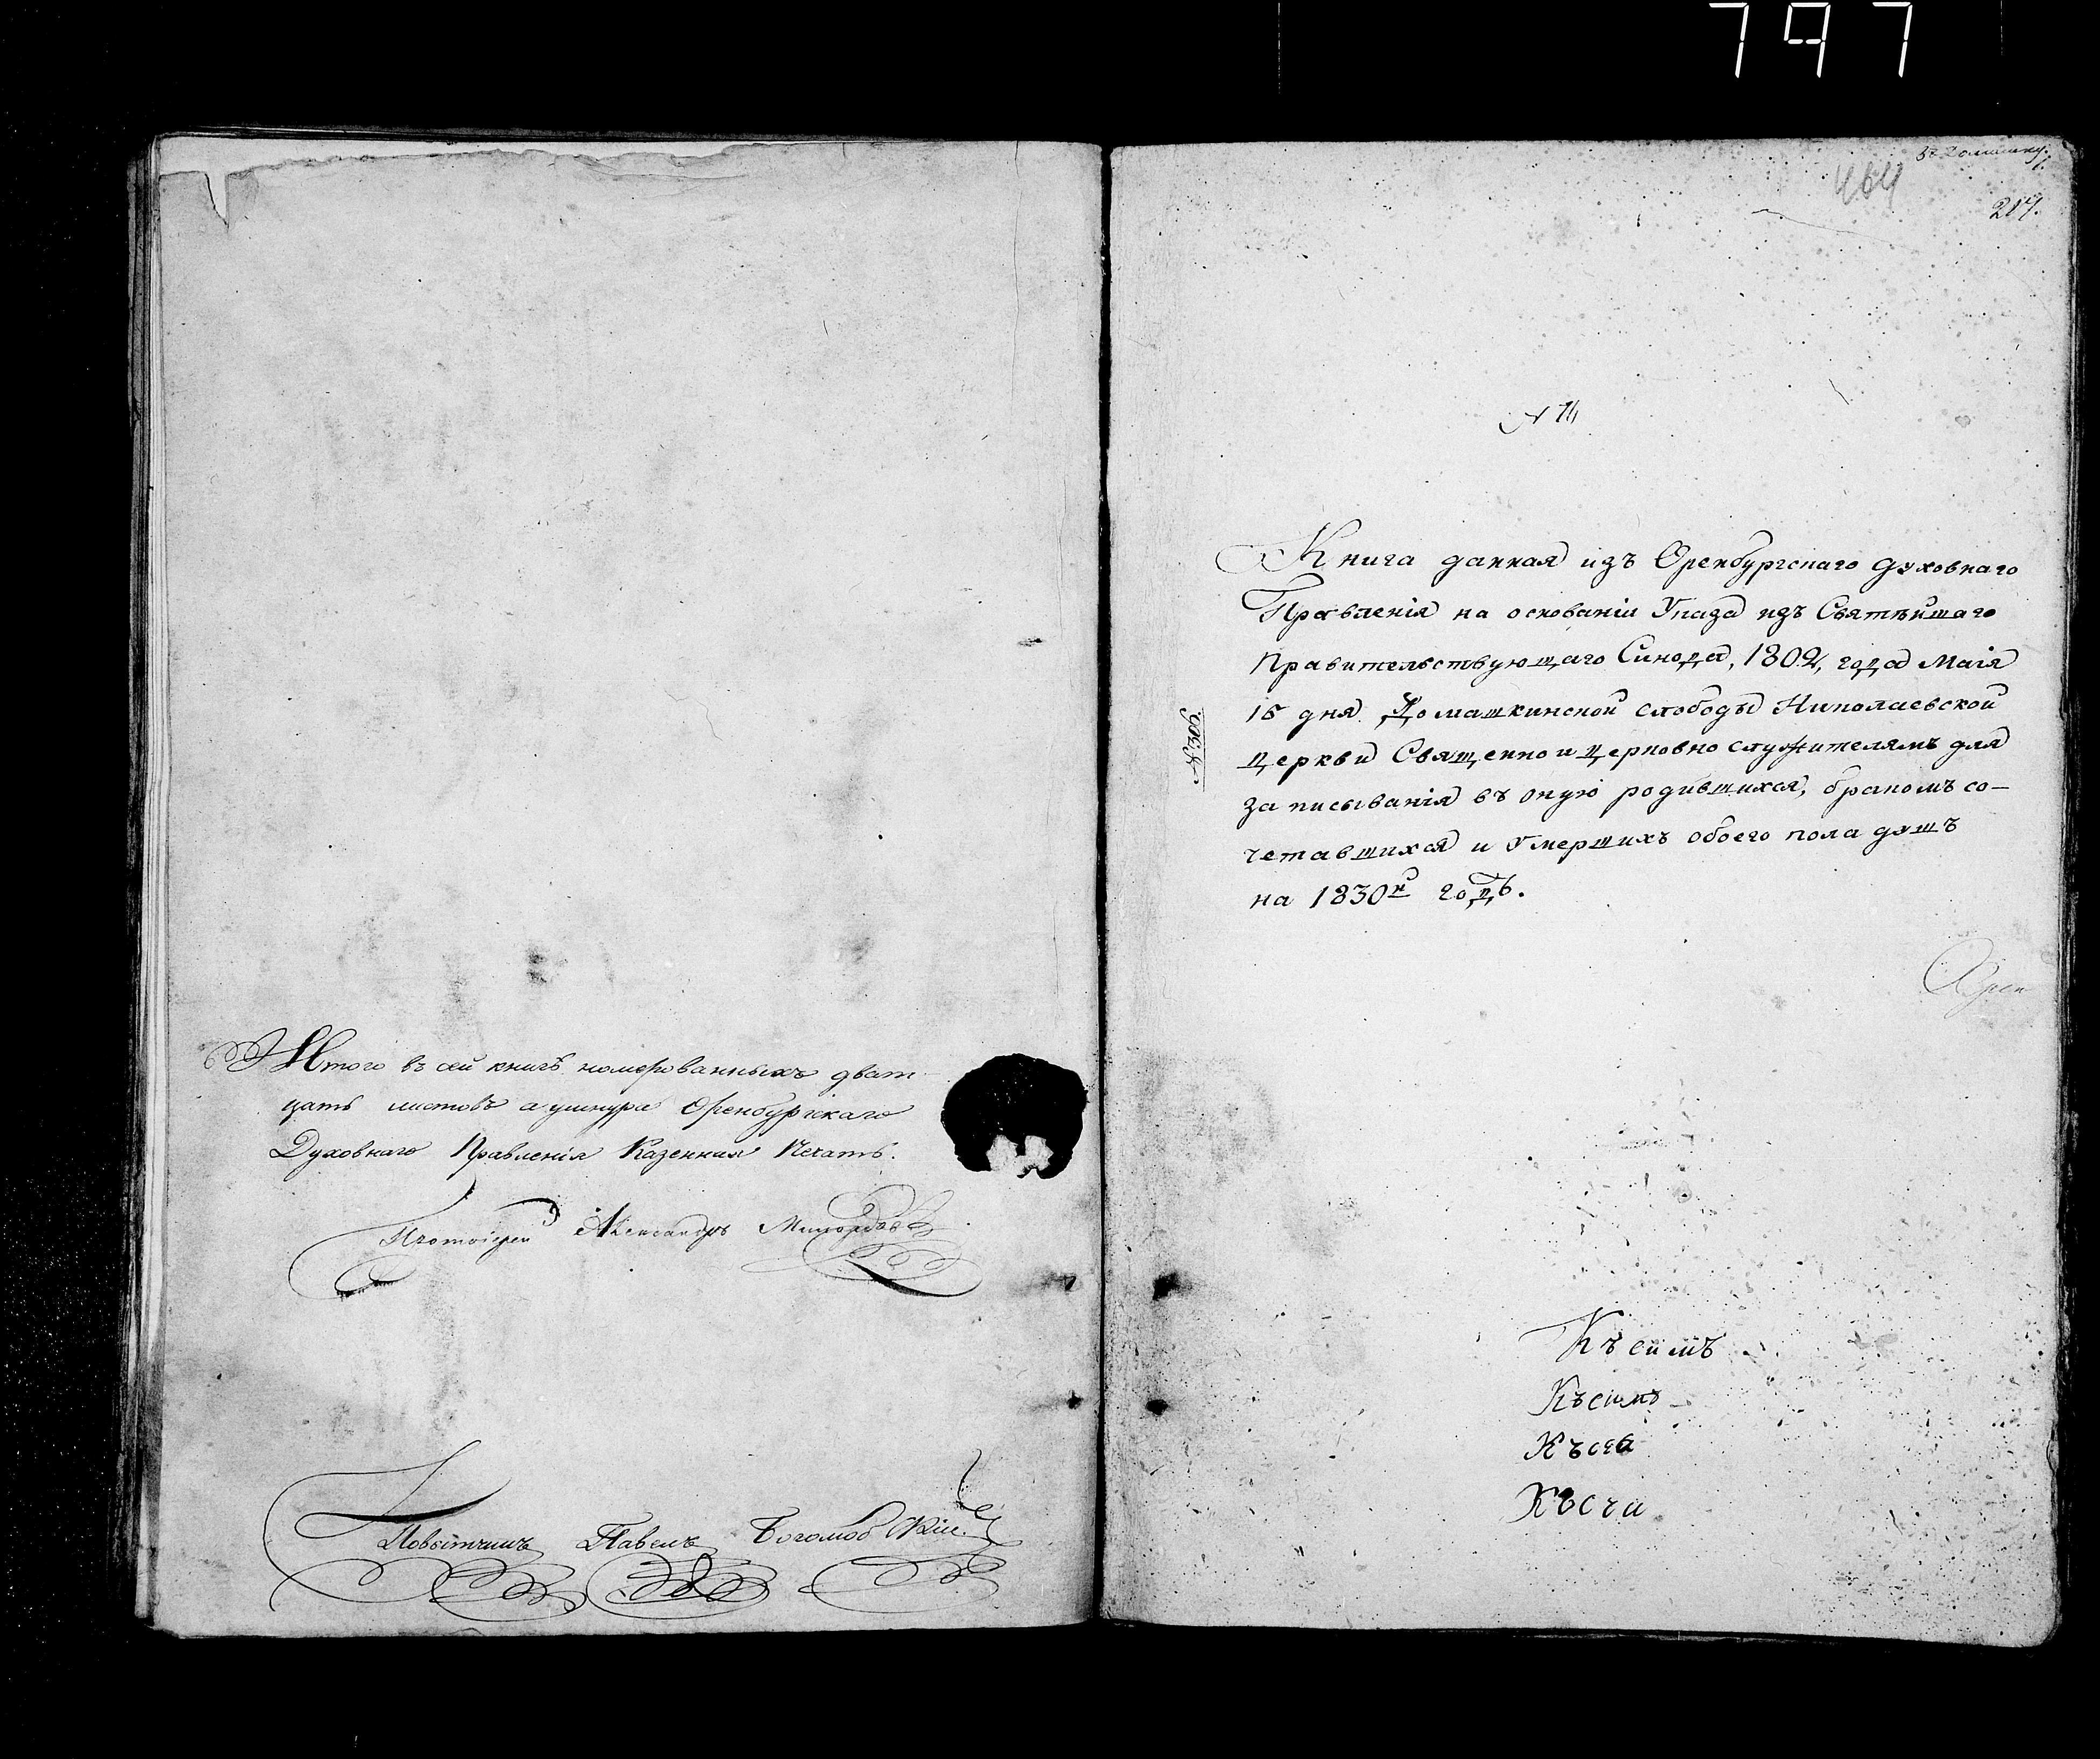 797
Итого въ сей книгѣ номерованныхъ дват
цать листовъ а ушнура Оренбургскаго
Духовнаго Правленія Казенная Печать.
Протоіерей Александръ
Повытчикъ Павелъ
464
217.
N 14
Книга данная изъ Оренбургскаго духовнаго
Правленія на основаніи Указа изъ Святѣйшаго
Правительствующаго Синода, 1802, года Маія
15 дня Домашкинской слободы Николаевской
церкви Священно и церковно служителямъ для
записыванія въ оную родившихся, бракомъ со-
четавшихся и Умершихъ обоего пола душъ
на 1830й годъ.
№ 8306.
Орен
Къ симъ
Къ симъ